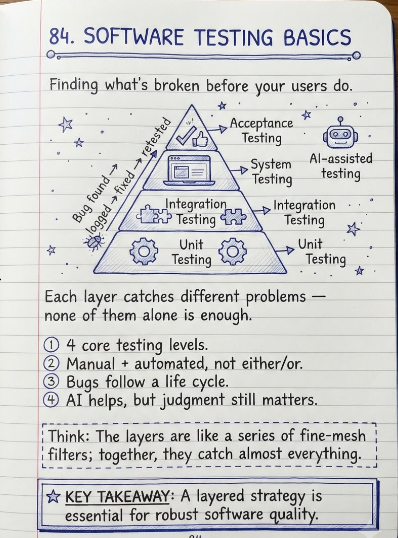 84. SOFTWARE TESTING BASICS
Finding what's broken before your users do.
Acceptance
Testing
AI-assisted
testing
System
Testing
Bug found →
logged → fixed → retested
Integration
Testing
Integration
Testing
Unit
Testing
Unit
Testing
Each layer catches different problems —
none of them alone is enough.
① 4 core testing levels.
② Manual + automated, not either/or.
③ Bugs follow a life cycle.
④ AI helps, but judgment still matters.
Think: The layers are like a series of fine-mesh
filters; together, they catch almost everything.
KEY TAKEAWAY: A layered strategy is
essential for robust software quality.